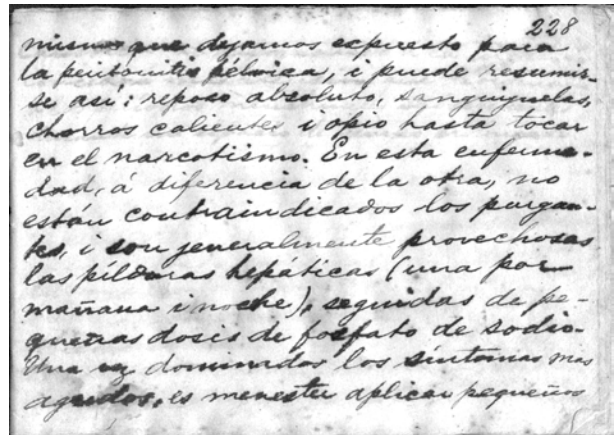 228
mismo que dejamos expuesto para
la peritonitis pélvica, i puede resumir-
se así: reposo absoluto, sanguijuelas,
chorros calientes i opio hasta tocar
en el narcotismo. En esta enferme-
dad, á diferencia de la otra, no
están contraindicados los purgan-
tes, i son jeneralmente provechosas
las píldoras hepáticas (una por
mañana i noche), seguidas de pe-
queñas dosis de fosfato de sodio.
Una vez dominados los síntomas mas
agudos, es menester aplicar pequeños